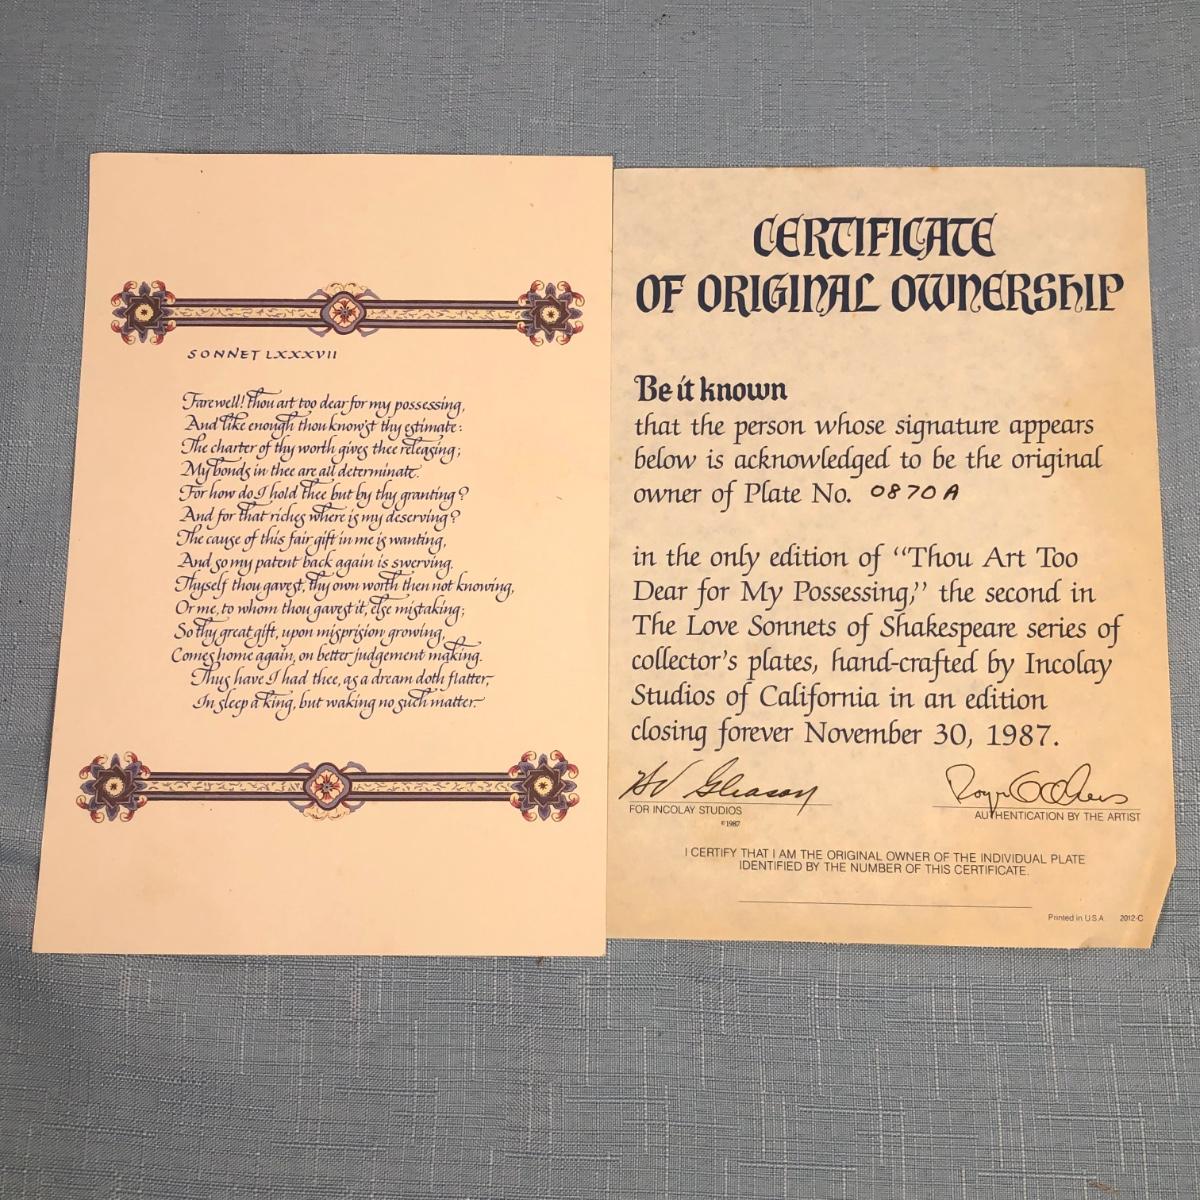 SONNET LXXXVII
Farewell! thou art too dear for my possessing,
And like enough thou know'st thy estimate:
The charter of thy worth gives thee releasing;
My bonds in thee are all determinate.
For how do I hold thee but by thy granting?
And for that riches where is my deserving?
The cause of this fair gift in me is wanting,
And so my patent back again is swerving.
Thyself thou gavest, thy own worth then not knowing,
Or me, to whom thou gavest it, else mistaking;
So thy great gift, upon misprision growing,
Comes home again, on better judgement making.
Thus have I had thee, as a dream doth flatter,
In sleep a king, but waking no such matter.
CERTIFICATE
OF ORIGINAL OWNERSHIP
Be it known
that the person whose signature appears
below is acknowledged to be the original
owner of Plate No. 0870A
in the only edition of “Thou Art Too
Dear for My Possessing,” the second in
The Love Sonnets of Shakespeare series of
collector's plates, hand-crafted by Incolay
Studios of California in an edition
closing forever November 30, 1987.
Gleason
FOR INCOLAY STUDIOS
©1987
AUTHENTICATION BY THE ARTIST
I CERTIFY THAT I AM THE ORIGINAL OWNER OF THE INDIVIDUAL PLATE
IDENTIFIED BY THE NUMBER OF THIS CERTIFICATE.
Printed in U.S.A. 2012-C